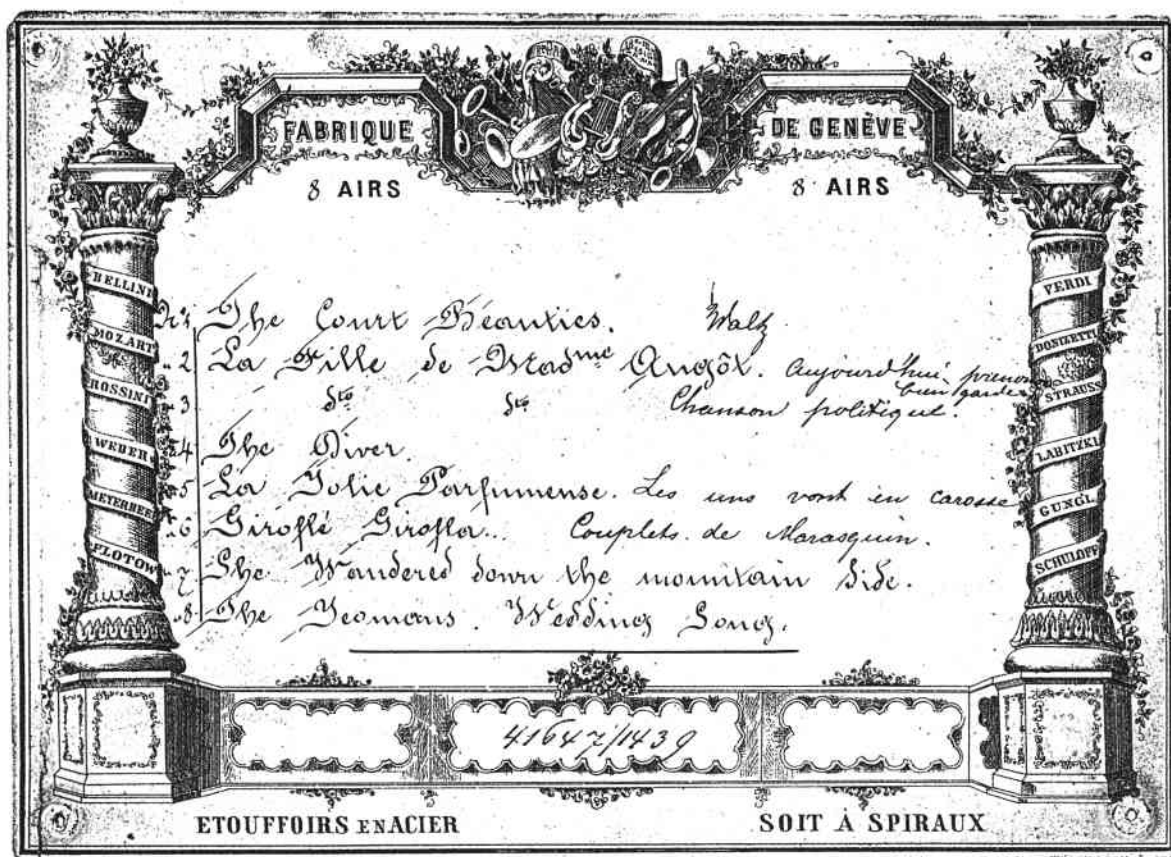 FABRIQUE DE GENÈVE
8 AIRS 8 AIRS
BELLINI
MOZART
ROSSINI
WEBER
MEYERBEER
FLOTOW
VERDI
DONIZETTI
STRAUSS
LABITZKI
GUNGL
SCHULOFF
N° 1 The Court Beauties. Waltz
" 2 La Fille de Madme Angôt. Aujourd'hui prenons bien garde
" 3 dto dto Chanson politique.
" 4 The Diver.
" 5 La Jolie Parfumeuse. Les uns vont in carosse
" 6 Giroflé Girofla... Couplets de Marasquin.
" 7 She Wandered down the mountain Side.
" 8 The Yeomans. Wedding Song.
41647/1439
ETOUFFOIRS EN ACIER SOIT À SPIRAUX